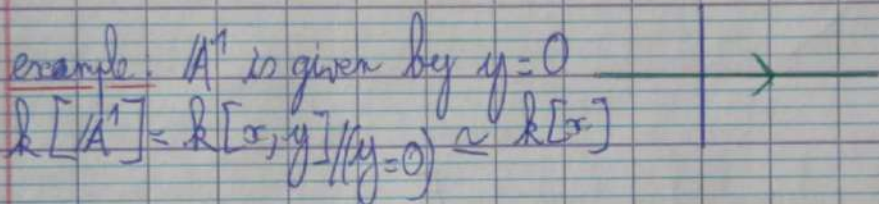 example. A¹ is given by y=0
k[A¹]=k[x,y]/(y=0) ≃ k[x]